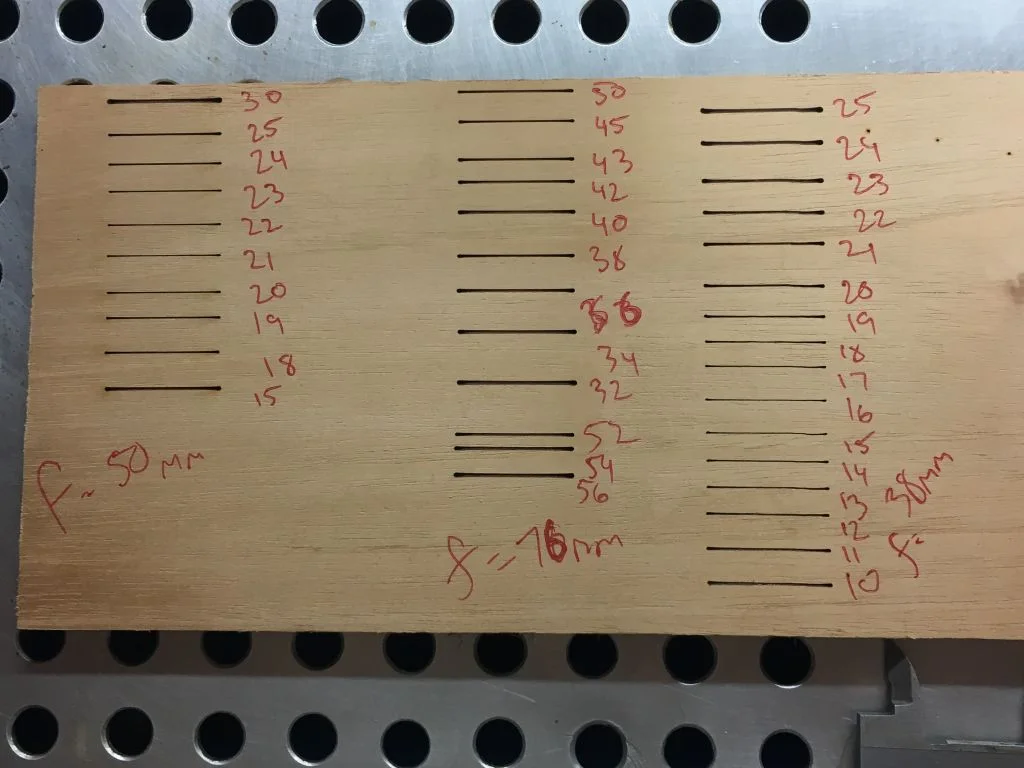 30
25
24
23
22
21
20
19
18
15
f = 50 mm
50
45
43
42
40
38
36
34
32
52
54
56
f = 76 mm
25
24
23
22
21
20
19
18
17
16
15
14
13
12
11
10
f = 38mm